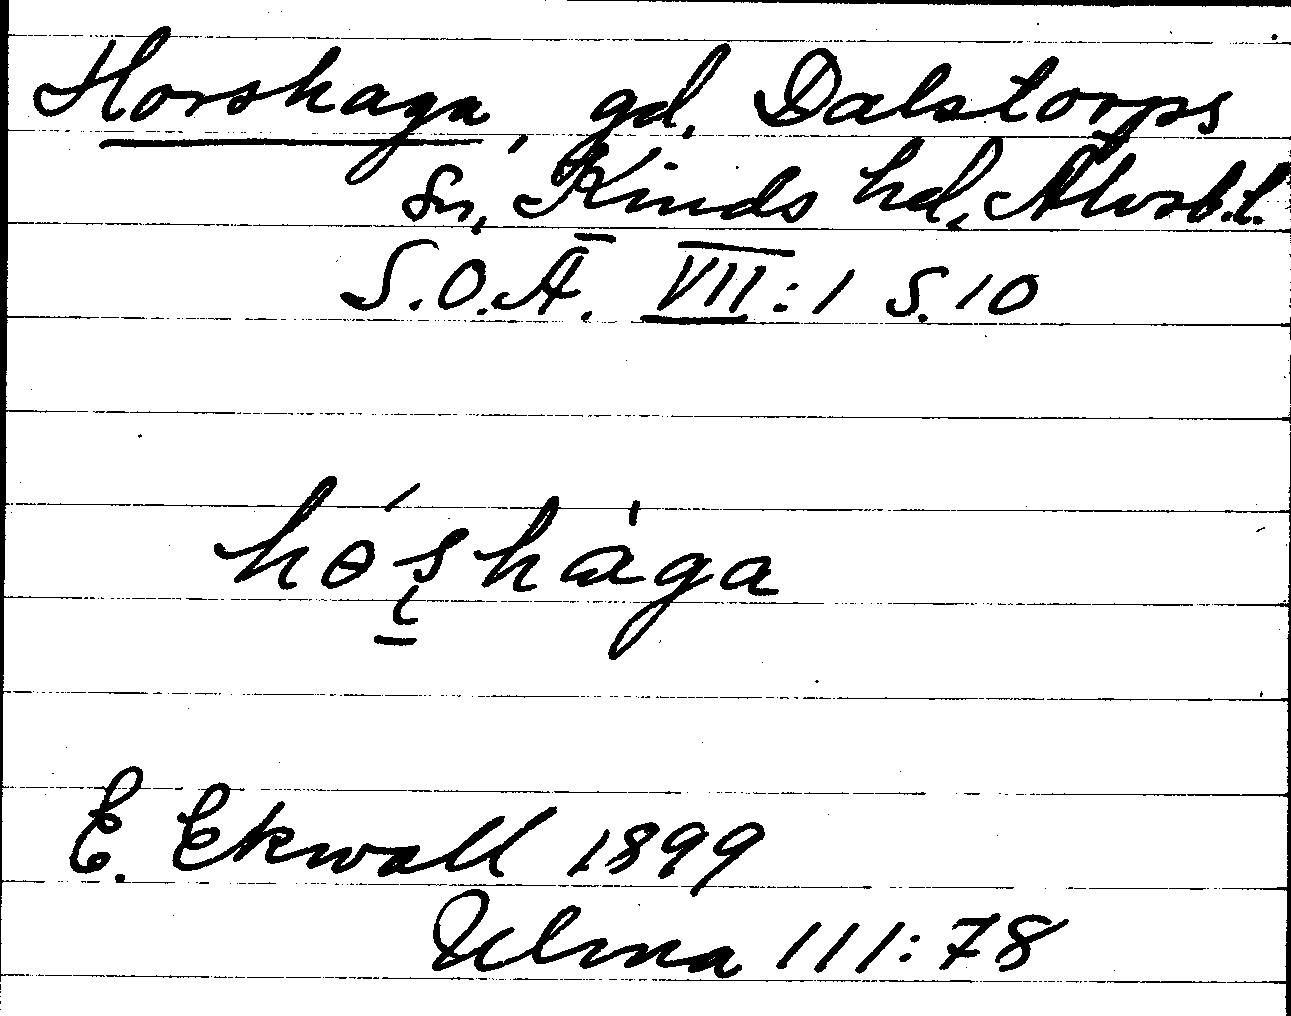 Horshaga, gd. Dalstorps
sn, Kinds hd, Älvsb.l.
S.O.Ä. VII:1 S.10
hɵ́ʂhàga
E. Ekwall 1899
Ulma 111:78